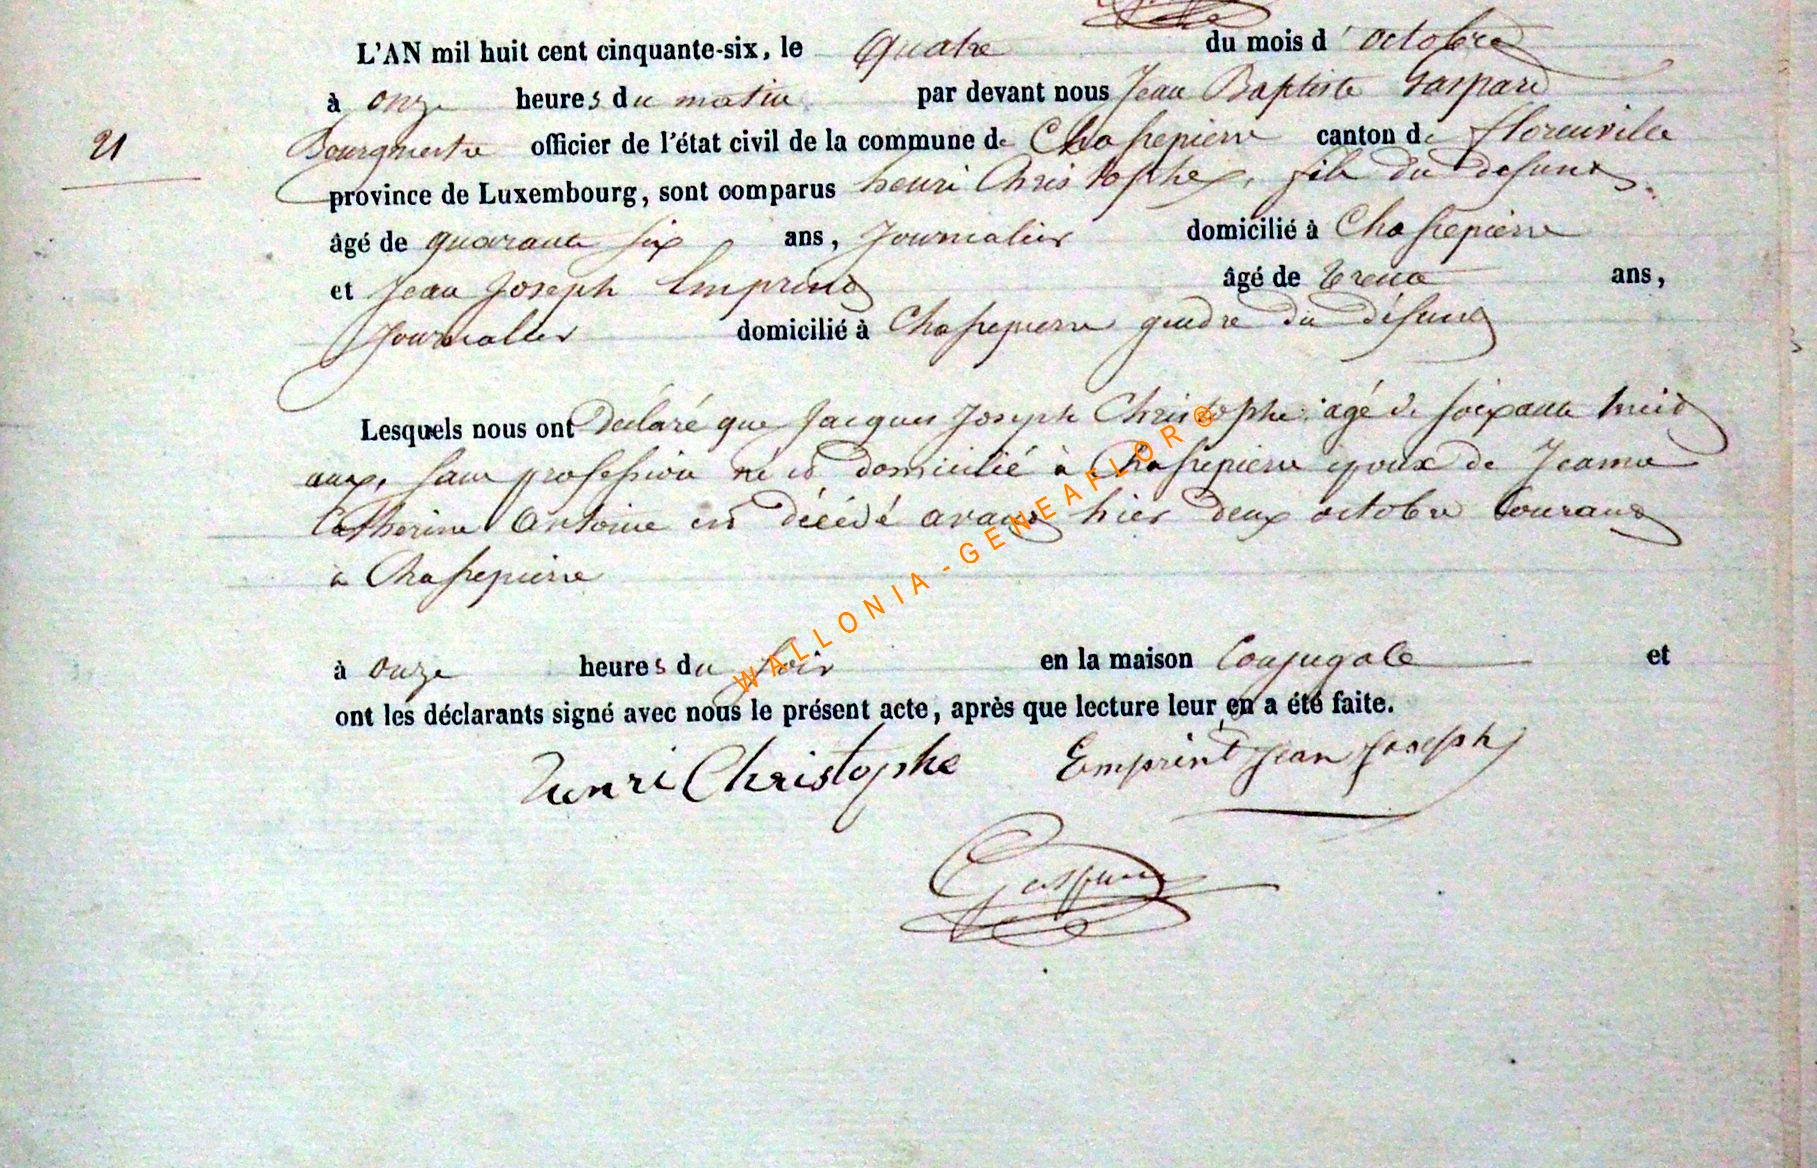 L'AN mil huit cent cinquante-six, le quatre du mois d'octobre
à onze heures du matin par devant nous Jean Baptiste Gaspard
21
Bourgmestre officier de l'état civil de la commune de Chassepierre canton de florenville
province de Luxembourg, sont comparus henri Christophe, fils du defunt
âgé de quarante six ans, Journalier domicilié à Chassepierre
et Jean Joseph Emprint âgé de trente ans,
Journalier domicilié à Chassepierre gendre du défunt
Lesquels nous ont Déclaré que Jacques Joseph Christophe agé de soixante huit
ans, sans profession né et domicilié à Chassepierre époux de Jeanne
Catherine Antoine est décédé avant hier deux octobre courant
à Chassepierre
à onze heures du soir en la maison Conjugale et
ont les déclarants signé avec nous le présent acte, après que lecture leur en a été faite.
henri Christophe Emprint Jean Joseph
Gaspard
WALLONIA - GENEAFLOR®